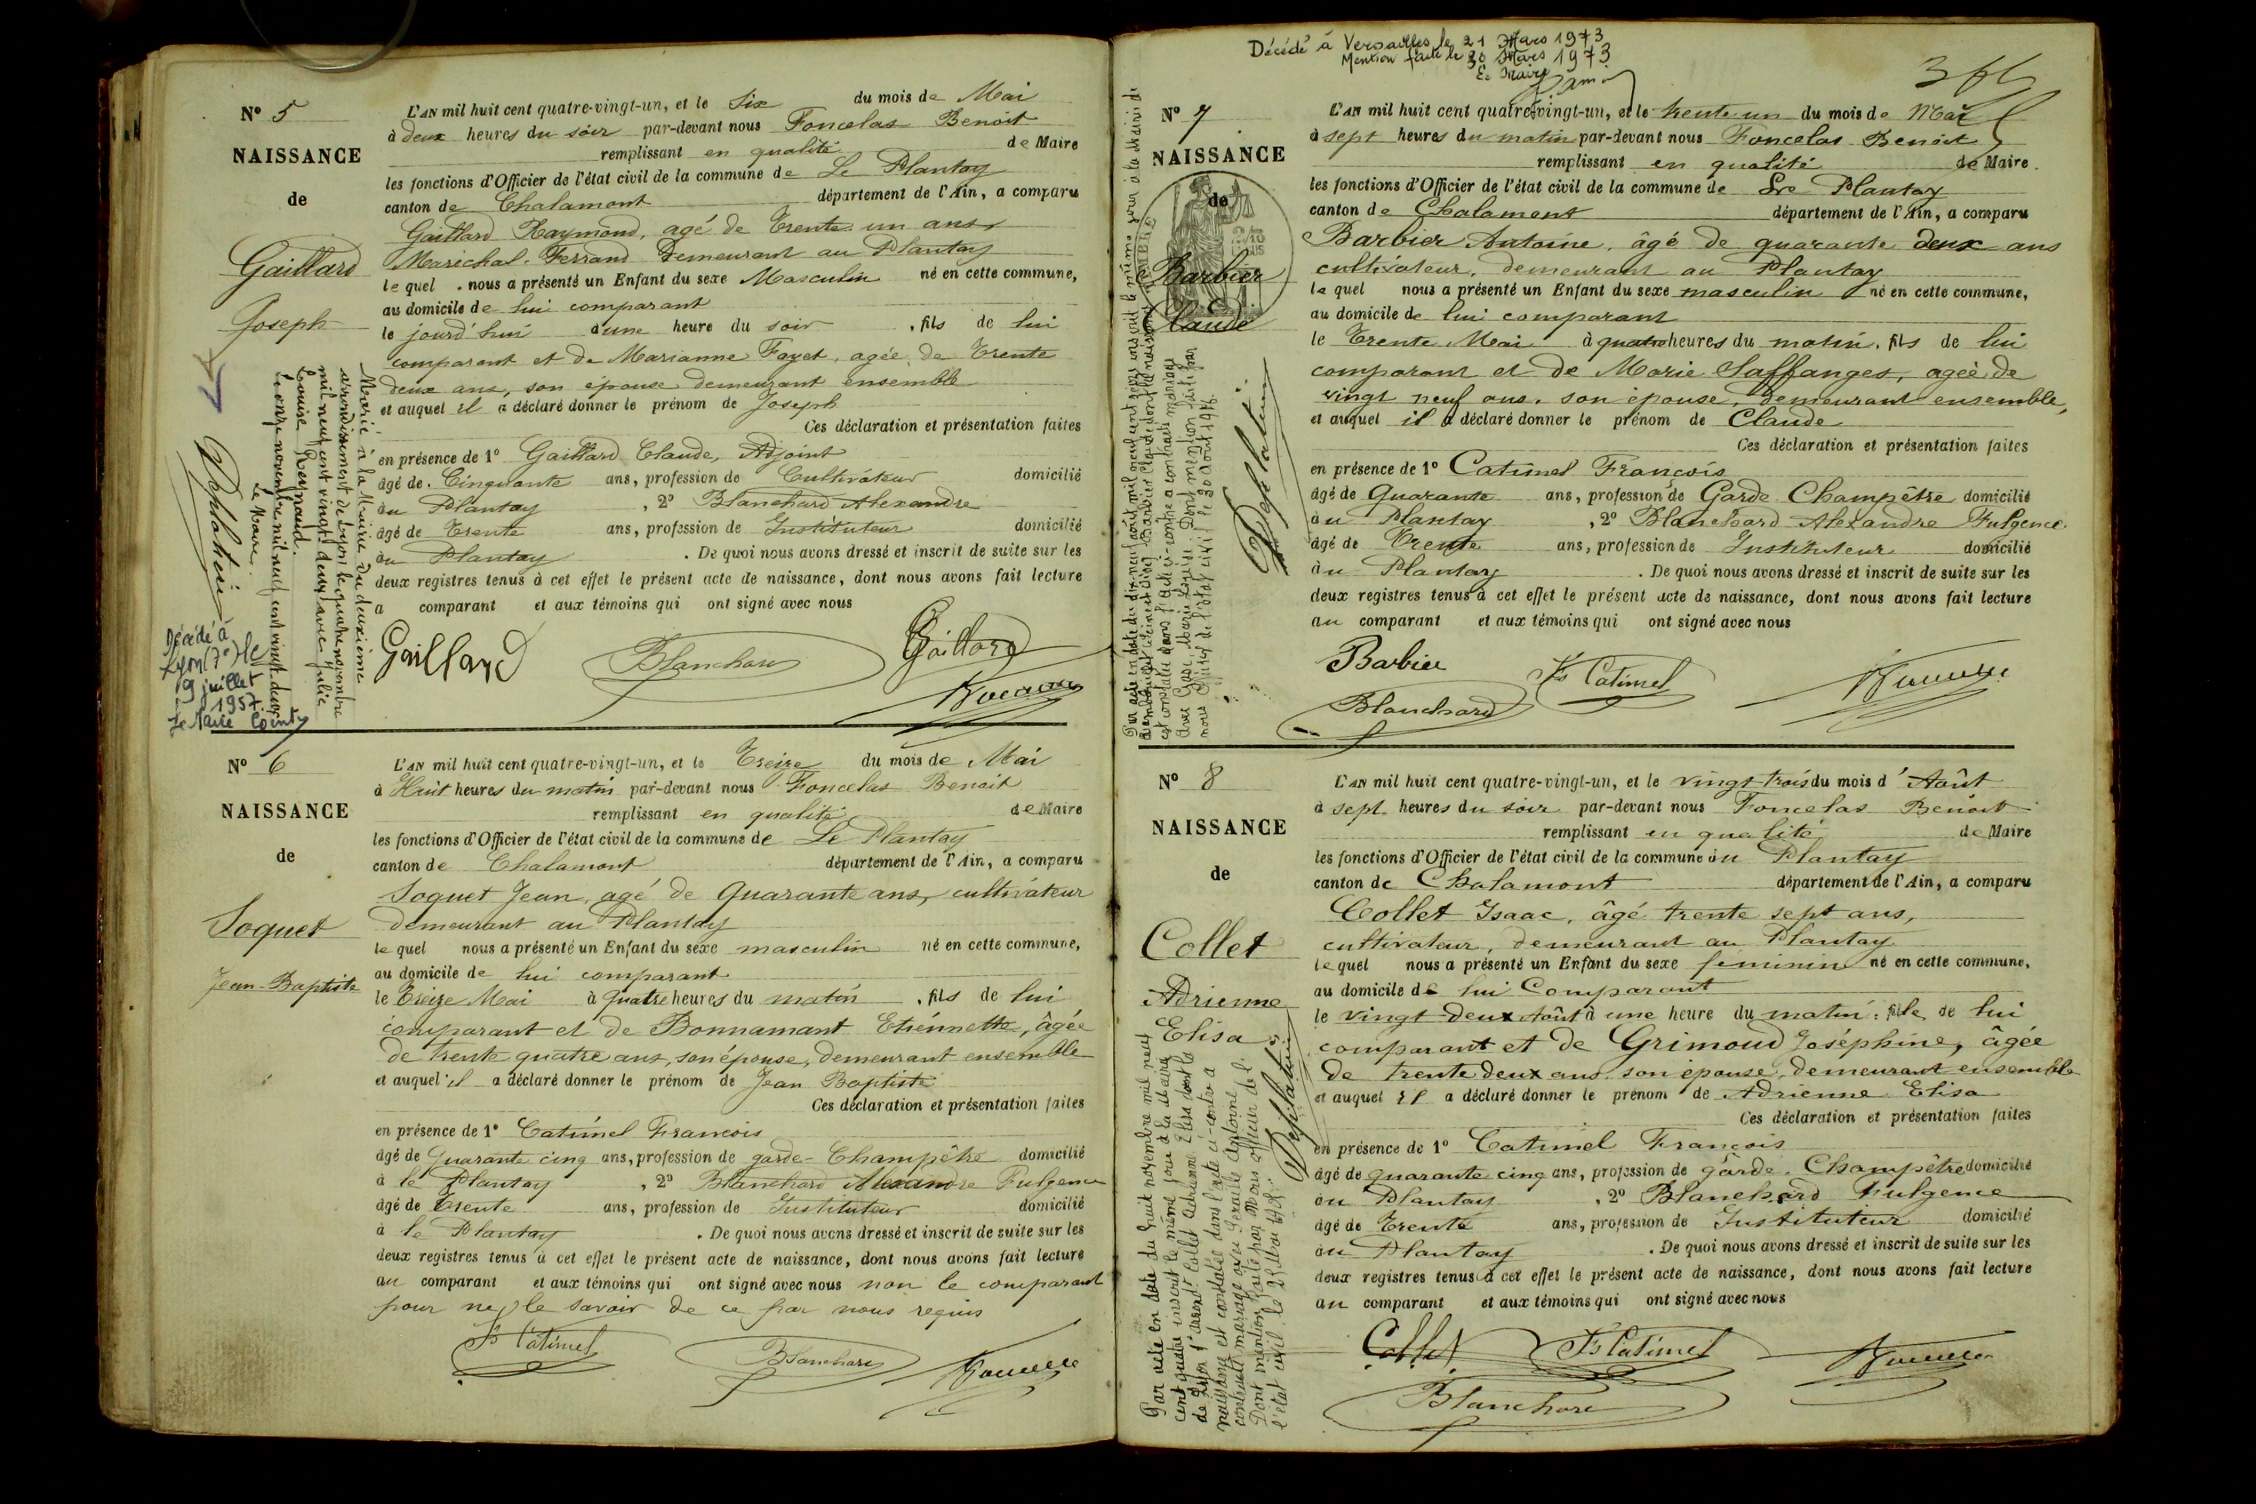 N° 5
NAISSANCE
de
Gaillard
Joseph
L'AN mil huit cent quatre-vingt-un, et le Six du mois de Mai
à deux heures du soir par-devant nous Foncelas Benoit
remplissant en qualité de Maire
les fonctions d'Officier de l'état civil de la commune de Le Plantay
canton de Chalamont département de l'Ain, a comparu
Gaillard Raymond, agé de Trente un ans
Maréchal-Ferrand Demeurant au Plantay
le quel nous a présenté un Enfant du sexe Masculin né en cette commune,
au domicile de lui comparant
le jourd'hui à une heure du soir, fils de lui
comparant et de Marianne Fayet, agée de Trente
deux ans, son épouse demeurant ensemble
et auquel il a déclaré donner le prénom de Joseph
Ces déclaration et présentation faites
en présence de 1° Gaillard Claude, Adjoint
âgé de Cinquante ans, profession de Cultivateur domicilié
au Plantay, 2° Blanchard Alexandre
âgé de Trente ans, profession de Instituteur domicilié
au Plantay. De quoi nous avons dressé et inscrit de suite sur les
deux registres tenus à cet effet le présent acte de naissance, dont nous avons fait lecture
a comparant et aux témoins qui ont signé avec nous
Gaillard Blanchard Gaillard
Marié à la Mairie du deuxième
arrondissement de Lyon le quatre novembre
mil neuf cent vingt deux avec Julie
Louise Reynaud.
Le onze novembre mil neuf cent vingt deux
Le Maire.
Décédé à
Lyon (7e) le
9 juillet
1957.
Le Maire
N° 6
NAISSANCE
de
Soquet
Jean-Baptiste
L'AN mil huit cent quatre-vingt-un, et le Treize du mois de Mai
à Huit heures du matin par-devant nous Foncelas Benoit
remplissant en qualité de Maire
les fonctions d'Officier de l'état civil de la commune de Le Plantay
canton de Chalamont département de l'Ain, a comparu
Soquet Jean, agé de Quarante ans, cultivateur
demeurant au Plantay
le quel nous a présenté un Enfant du sexe masculin né en cette commune,
au domicile de lui comparant
le Treize Mai à quatre heures du matin, fils de lui
comparant et de Bonnamant Etiénnette, âgée
de trente quatre ans, son épouse, demeurant ensemble
et auquel il a déclaré donner le prénom de Jean Baptiste
Ces déclaration et présentation faites
en présence de 1° Catimel Francois
âgé de Quarante cinq ans, profession de garde-Champêtre domicilié
à le Plantay, 2° Blanchard Alexandre Fulgence
âgé de Trente ans, profession de Instituteur domicilié
à le Plantay. De quoi nous avons dressé et inscrit de suite sur les
deux registres tenus à cet effet le présent acte de naissance, dont nous avons fait lecture
au comparant et aux témoins qui ont signé avec nous non le comparant
pour ne le savoir de ce par nous requis
Fs Catimel Blanchard
Décédé à Versailles le 21 Mars 1973
Mention faite le 30 Mars 1973
Le Maire
N° 7
NAISSANCE
de
Barbier
Claude
L'AN mil huit cent quatre-vingt-un, et le trente un du mois de Mai
à sept heures du matin par-devant nous Foncelas Benoit
remplissant en qualité de Maire.
les fonctions d'Officier de l'état civil de la commune de Le Plantay
canton de Chalamont département de l'Ain, a comparu
Barbier Antoine, âgé de quarante deux ans
cultivateur, demeurant au Plantay
le quel nous a présenté un Enfant du sexe masculin né en cette commune,
au domicile de lui comparant
le Trente Mai à quatre heures du matin, fils de lui
comparant et de Marie Saffanges, agée de
vingt neuf ans, son épouse, demeurant ensemble,
et auquel il a déclaré donner le prénom de Claude
Ces déclaration et présentation faites
en présence de 1° Catimel François
âgé de Quarante ans, profession de Garde Champêtre domicilié
au Plantay, 2° Blanchard Alexandre Fulgence.
âgé de Trente ans, profession de Instituteur domicilié
au Plantay. De quoi nous avons dressé et inscrit de suite sur les
deux registres tenus à cet effet le présent acte de naissance, dont nous avons fait lecture
au comparant et aux témoins qui ont signé avec nous
Barbier Fs Catimel
Blanchard
N° 8
NAISSANCE
de
Collet
Adrienne
Elisa
L'AN mil huit cent quatre-vingt-un, et le vingt-trois du mois d'Août
à sept heures du soir par-devant nous Foncelas Benoit
remplissant en qualité de Maire
les fonctions d'Officier de l'état civil de la commune du Plantay
canton de Chalamont département de l'Ain, a comparu
Collet Isaac, âgé trente sept ans,
cultivateur, demeurant au Plantay
le quel nous a présenté un Enfant du sexe feminin né en cette commune,
au domicile de lui Comparant
le vingt-deux Août à une heure du matin, fille de lui
comparant et de Grimoud Joséphine, âgée
de trente deux ans son épouse, demeurant ensemble
et auquel il a déclaré donner le prénom de Adrienne Elisa
Ces déclaration et présentation faites
en présence de 1° Catimel François
âgé de quarante cinq ans, profession de garde-Champêtre domicilié
au Plantay, 2° Blanchard Fulgence
âgé de Trente ans, profession de Instituteur domicilié
au Plantay. De quoi nous avons dressé et inscrit de suite sur les
deux registres tenus à cet effet le présent acte de naissance, dont nous avons fait lecture
au comparant et aux témoins qui ont signé avec nous
Collet Fs Catimel
Blanchard
Par acte en date du huit novembre mil neuf
cent quatre inscrit le même jour à la Mairie
de Lyon arrond. Collet Adrienne Elisa dont la
naissance est constatée dans l'acte ci-contre a
contracté mariage avec Antoine
Dont mention faite par Nous officier de
l'état civil le